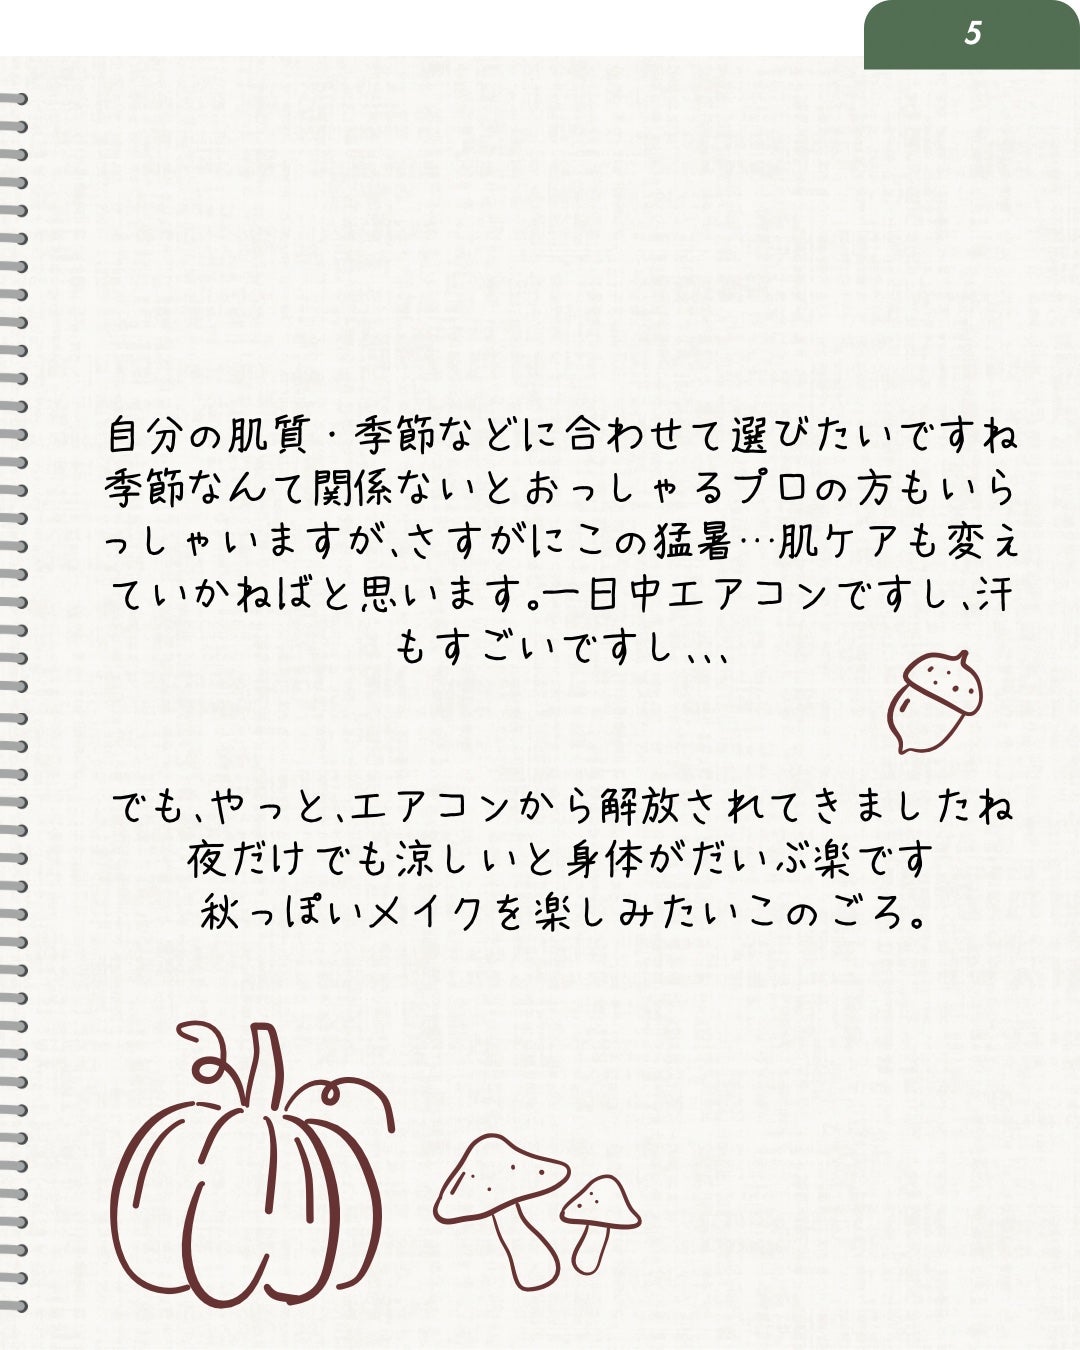 5
自分の肌質・季節などに合わせて選びたいですね
季節なんて関係ないとおっしゃるプロの方もいら
っしゃいますが、さすがにこの猛暑…肌ケアも変え
ていかねばと思います。一日中エアコンですし、汗
もすごいですし、、、
でも、やっと、エアコンから解放されてきましたね
夜だけでも涼しいと身体がだいぶ楽です
秋っぽいメイクを楽しみたいこのごろ。